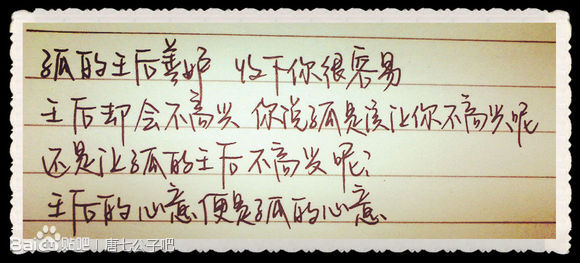 孤的王后善妒 收下你很容易
王后却会不高兴 你说孤是该让你不高兴呢
还是让孤的王后不高兴呢?
王后的心意便是孤的心意
Bai贴吧|唐七公子吧